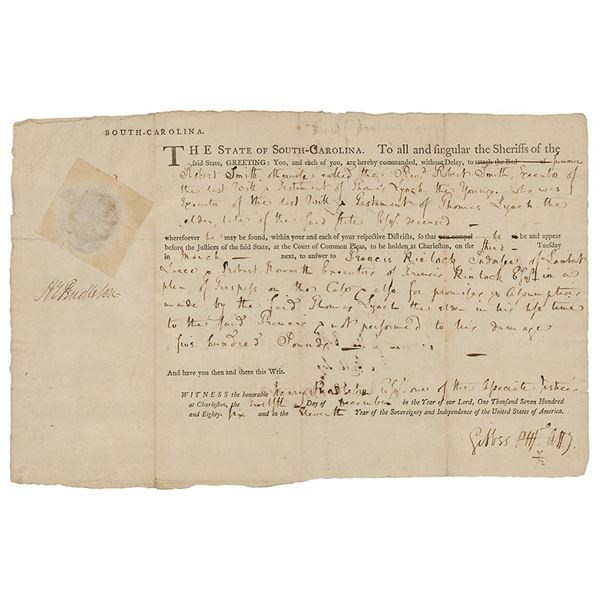 SOUTH-CAROLINA.
THE STATE OF SOUTH-CAROLINA. To all and singular the Sheriffs of the
said State, GREETING: You, and each of you, are hereby commanded, without Delay, to attach the Bod of summon
Robert Smith otherwise called the Revd. Robert Smith, Executor of
the last Will & Testament of Thomas Lynch the Younger who was
Executor of the last Will & Testament of Thomas Lynch the
elder late of the said State Esqr. deceased
wheresoever he may be found, within your and each of your respective Districts, so that you compel he be and appear
before the Justices of the said State, at the Court of Common Pleas, to be holden at Charleston, on the third Tuesday
in March next, to answer to Francis Kinlock of Lambert
Lance & Robert Executors of Francis Kinlock Esqr. in a
plea of trespass on the Case also for promises & Assumptions
made by the said Thomas Lynch the elder in his life time
to the said Francis & not performed to his damage
five hundred Pounds
And have you then and there this Writ.
WITNESS the honorable Henry Pendleton Esqr. one of the Associate Justices
at Charleston, the twelfth Day of December in the Year of our Lord, One Thousand Seven Hundred
and Eighty-six and in the Eleventh Year of the Sovereignty and Independence of the United States of America.
Hy. Pendleton
Gibbes Plffs. Atty.